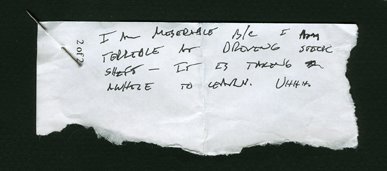 2 of 2
I AM MISERABLE B/C I AM
TERRIBLE AT DRIVING STICK
SHIFT – IT IS TAKING
AWHILE TO LEARN. UHHH.